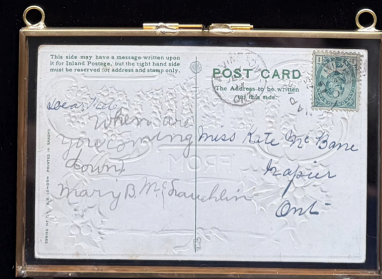 This side may have a message written upon
it for Inland Postage, but the right hand side
must be reserved for address and stamp only.
POST CARD
The Address to be written
on this side.
When are
you coming
down
Mary B. McLauchlin
Miss Kate McBane
Napier
Ont